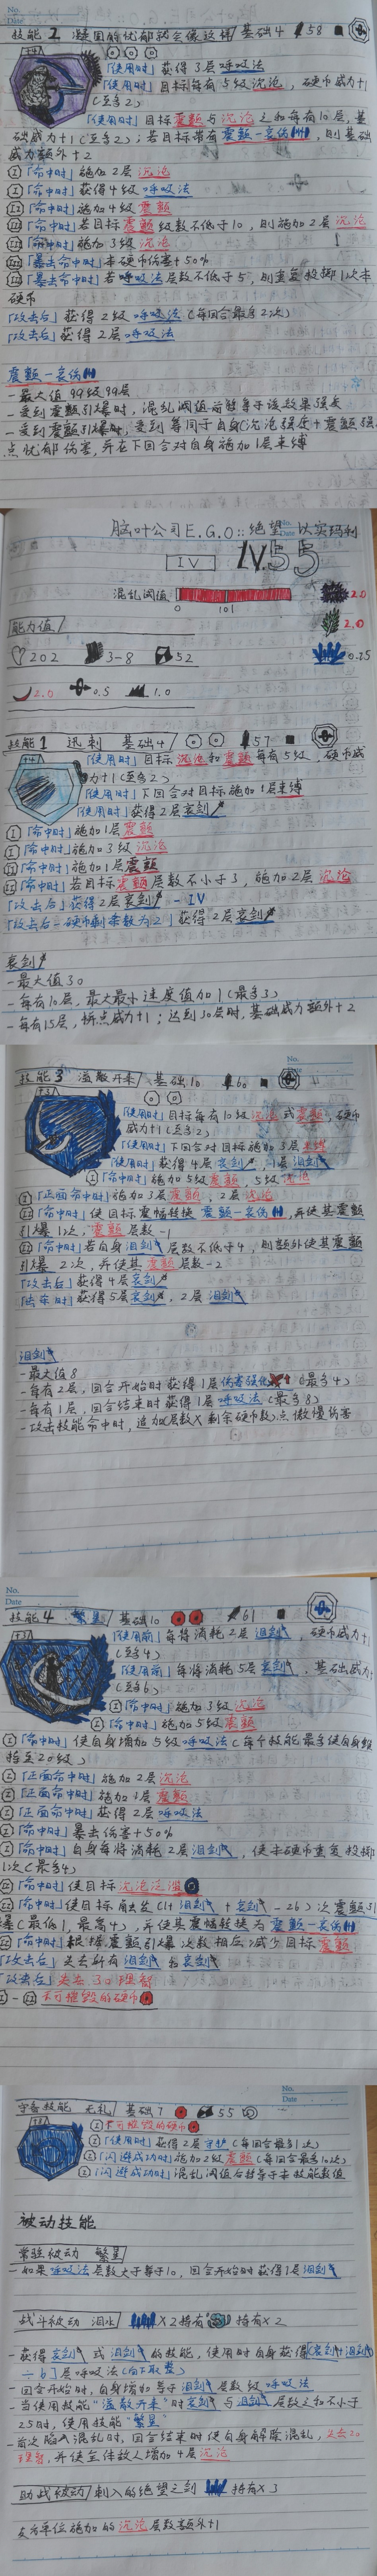 No.
Date
技能2 凝固的忧郁就会像这样 基础4 58
+4
「使用时」获得3层呼吸法
「使用时」目标每有5级沉沦,硬币威力+1
(至多2)
「使用时」目标震颤与沉沦之和每有10层,基
础威力+1(至多2);若目标带有震颤-哀伤,则基础
威力额外+2
I「命中时」施加2层沉沦
I「命中时」获得4级呼吸法
II「命中时」施加4级震颤
II「命中时」若目标震颤级数不低于10,则施加2层沉沦
III「命中时」施加3级沉沦
III「暴击命中时」本硬币伤害+50%
III「暴击命中时」若呼吸法层数不低于5,则重复投掷1次本
硬币
「攻击后」获得2级呼吸法(每回合最多2次)
「攻击后」获得2层呼吸法
震颤-哀伤
-最大值99级99层
-受到震颤引爆时,混乱阈值前移等于该效果强度
-受到震颤引爆时,受到等同于自身(沉沦强度+震颤强度)
点忧郁伤害,并在下回合对自身施加1层束缚
脑叶公司E.G.O::绝望 以实玛利
No.
Date
IV LV.55
混乱阈值 0 101
2.0
2.0
0.25
能力值
202 3-8 52
2.0 0.5 1.0
技能1 迅刺 基础4 57
+4
「使用时」目标沉沦和震颤每有5级,硬币威
力+1(至多2)
「使用时」下回合对目标施加1层束缚
「使用时」获得2层哀剑
I「命中时」施加1层震颤
I「命中时」施加3级沉沦
II「命中时」施加1层震颤
II「命中时」若目标震颤层数不小于3,施加2层沉沦
「攻击后」获得2层哀剑 - IV
「攻击后-硬币剩余数为2」获得2层哀剑
哀剑
-最大值30
-每有10层,最大最小速度值加1(最多3)
-每有15层,拼点威力+1;达到30层时,基础威力额外+2
No.
Date
技能3 溢散开来 基础10 60
+3
「使用时」目标每有10级沉沦或震颤,硬币
威力+1(至多2)
「使用时」下回合对目标施加3层束缚
「使用时」获得4层哀剑,1层泪剑
I「命中时」施加5级震颤,5级沉沦
I「正面命中时」施加3层震颤,2层沉沦
II「命中时」使目标震幅转换 震颤-哀伤,并使其震颤
引爆1次,震颤层数-1
II「命中时」若自身泪剑层数不低于4,则额外使其震颤
引爆2次,并使其震颤层数-2
「攻击后」获得4层哀剑
「击杀时」获得5层哀剑,2层泪剑
泪剑
-最大值8
-每有2层,回合开始时获得1层伤害强化(最多4)
-每有1层,回合结束时获得1层呼吸法(最多8)
-攻击技能命中时,追加(层数×剩余硬币数)点傲慢伤害
No.
Date
技能4 繁星 基础10 61
+3
「使用前」每将消耗2层泪剑,硬币威力+1
(至多4)
「使用前」每将消耗5层哀剑,基础威力+1
(至多6)
I「命中时」施加3级沉沦
I「命中时」施加5级震颤
I「命中时」使自身增加5级呼吸法(每个技能最多使自身堆
积至20级)
I「正面命中时」施加2层沉沦
I「正面命中时」施加3层震颤
I「正面命中时」获得2层呼吸法
I「命中时」暴击伤害+50%
I「命中时」自身每将消耗2层泪剑,使本硬币重复投掷
1次(最多4)
II「命中时」使目标沉沦泛滥
II「命中时」使目标触发(1+泪剑+哀剑-26)次震颤引
爆(最低1,最高4),并使其震幅转换为震颤-哀伤
II「命中时」根据震颤引爆次数相应减少目标震颤
「攻击后」失去所有泪剑和哀剑
「攻击后」失去30理智
I-II不可摧毁的硬币
No.
Date
守备技能 无礼 基础7 55
I不可摧毁的硬币
I「使用时」获得2层守护(每回合最多1次)
I「闪避成功时」施加2级震颤(每回合最多10次)
I「闪避成功时」混乱阈值后移等于本技能数值
被动技能
常驻被动 繁星
-如果呼吸法层数大于等于10,回合开始时获得1层泪剑
战斗被动 泪水 X2持有 持有×2
-获得哀剑或泪剑的技能,使用时自身获得(哀剑+泪剑)
÷6]层呼吸法(向下取整)
-回合开始时,自身增加等于泪剑层数级呼吸法
-当使用技能“溢散开来”时哀剑与泪剑层数之和不小于
25时,使用技能“繁星”
-首次陷入混乱时,回合结束时使自身解除混乱,失去20
理智,并使全体敌人增加4层沉沦
助战被动 刺入的绝望之剑 持有×3
友方单位施加的沉沦层数额外+1